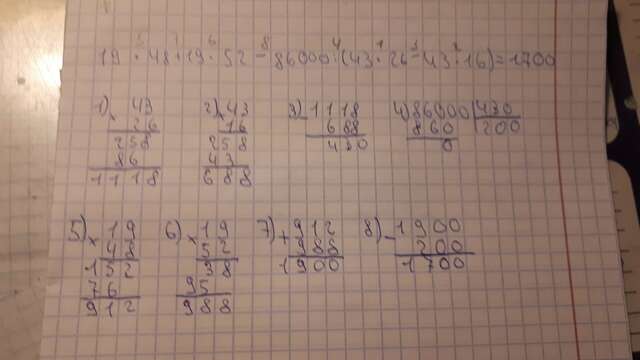 5 7 6 8 4 1 3 2
19 · 48 + 19 · 52 - 86000 : (43 · 26 - 43 · 16) = 1700
1) × 43 2) × 43 3) - 1118 4) 86000 | 430
26 16 688 860 200
258 258 430 0
86 43
1118 688
5) × 19 6) × 19 7) + 912 8) - 1900
48 52 988 200
152 38 1900 1700
76 95
912 988